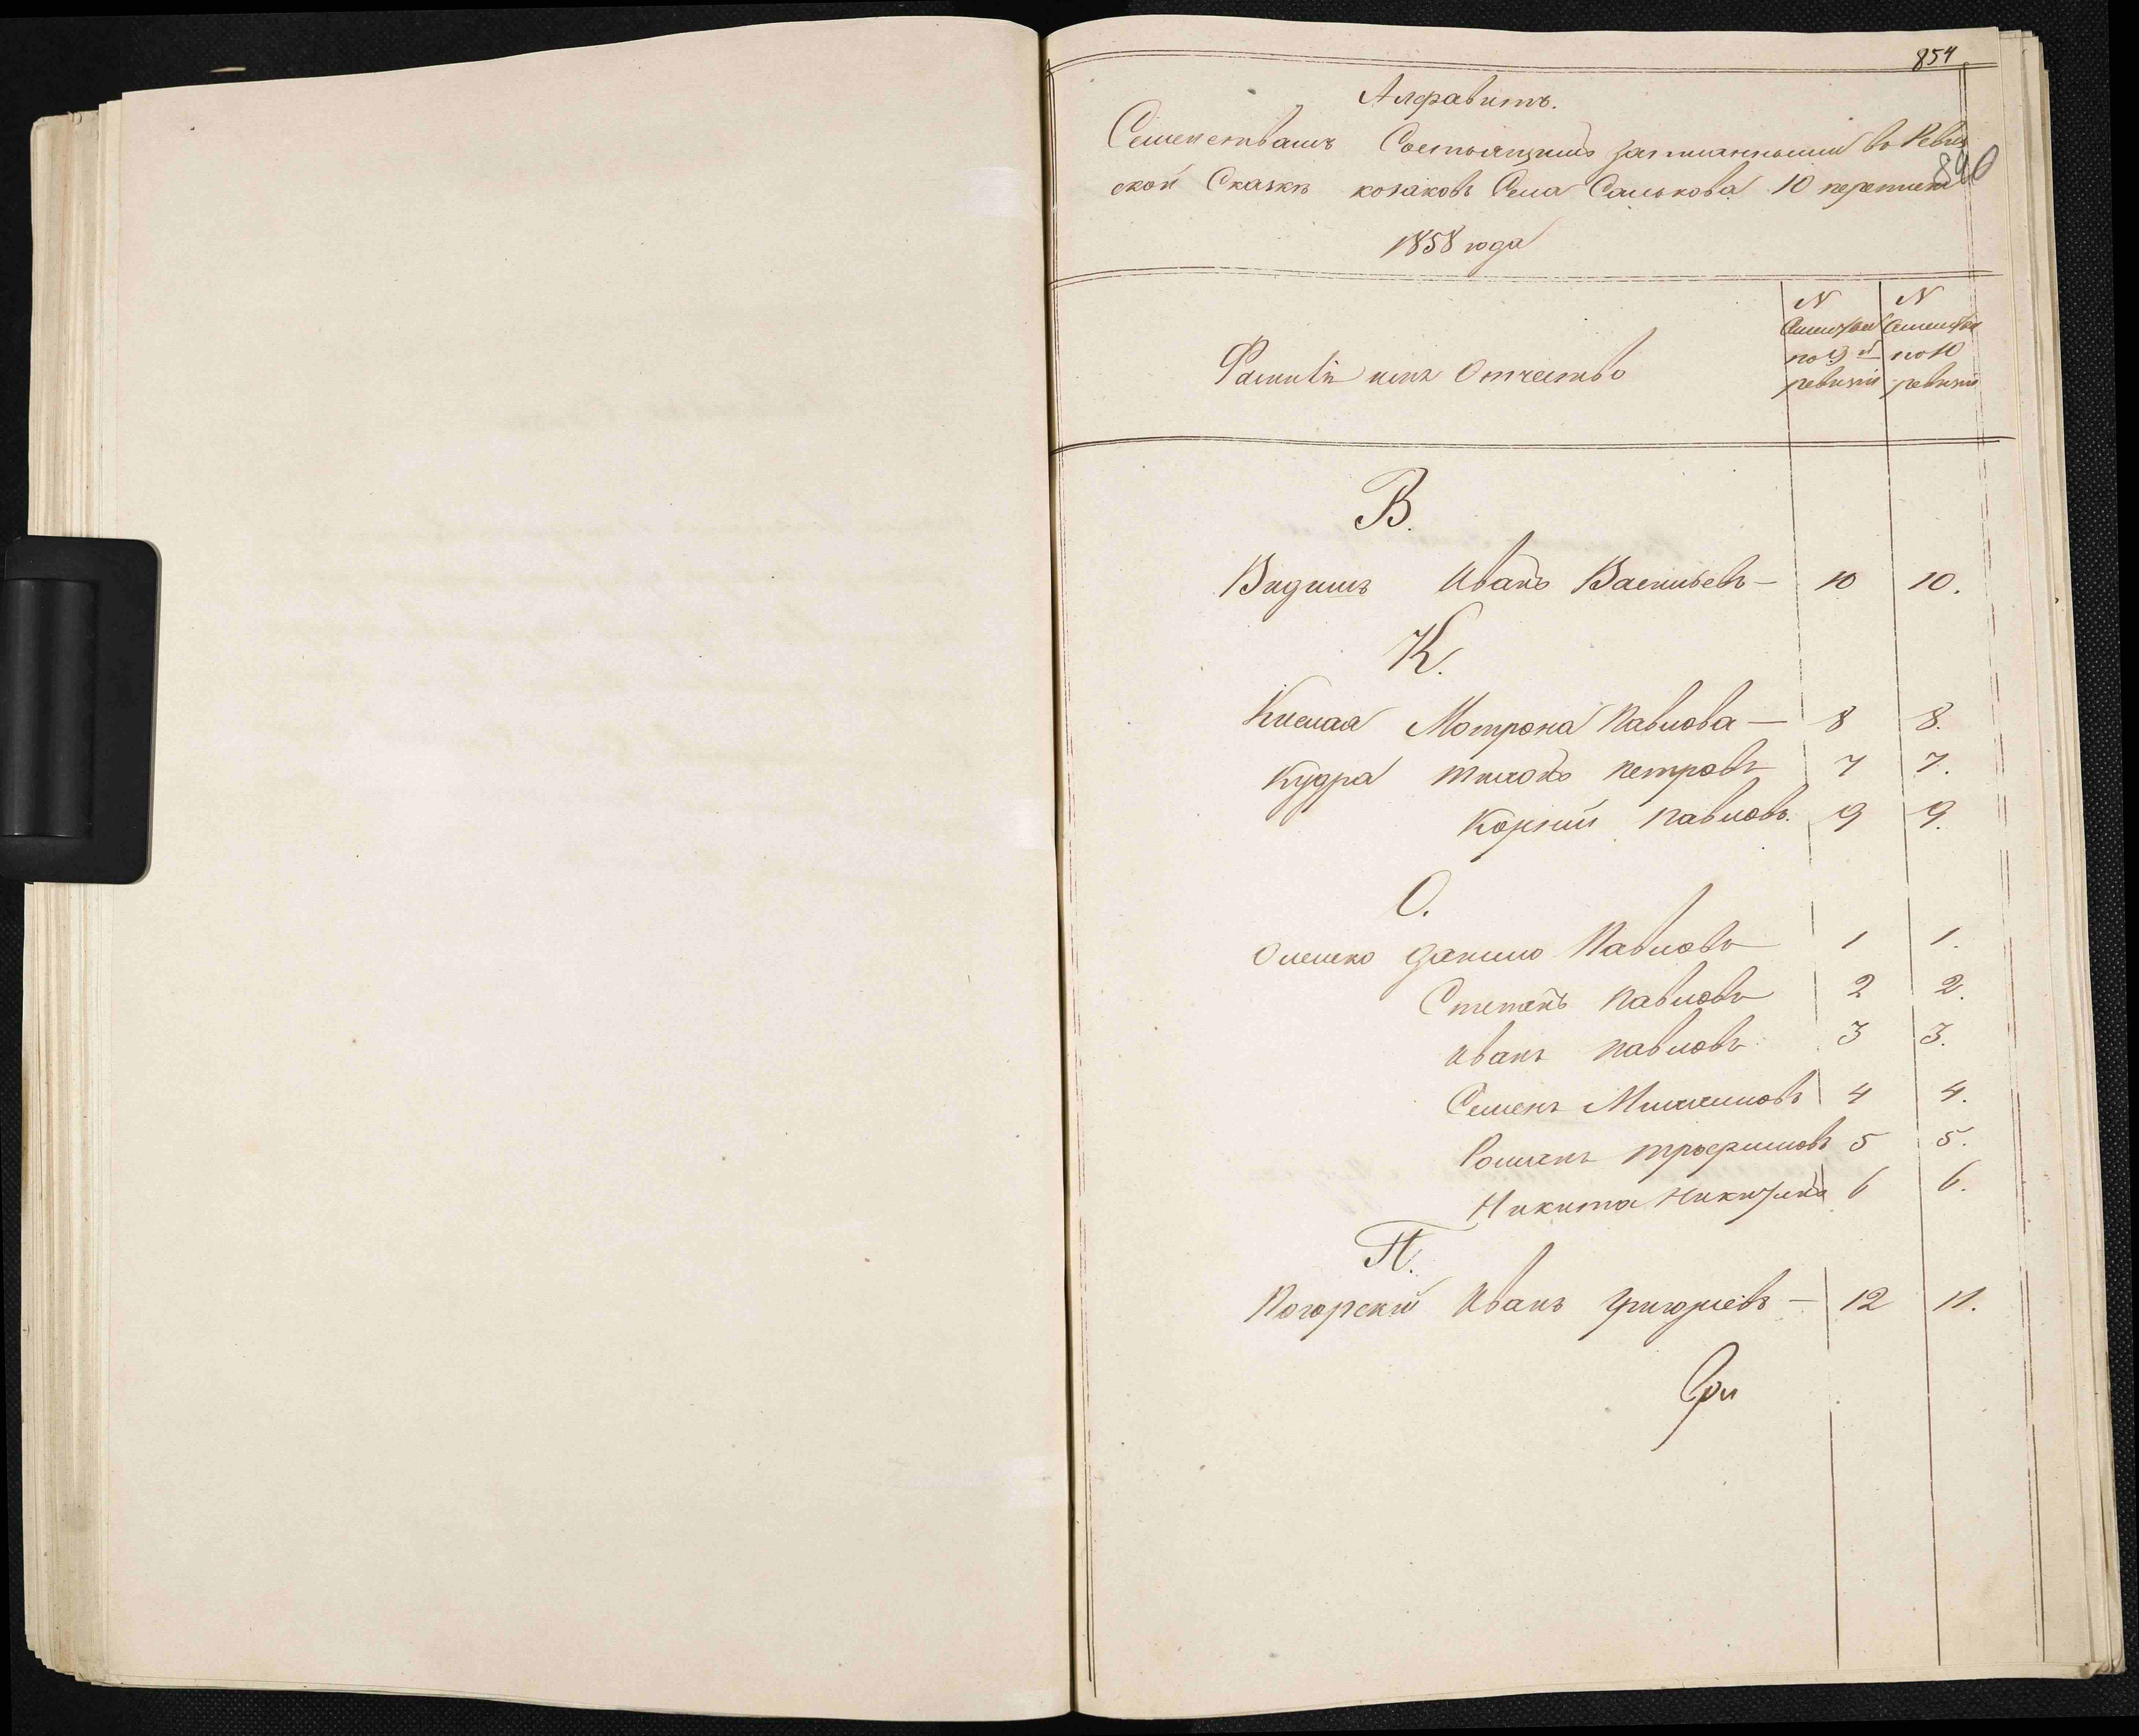 854
Алфавитъ.
Семействамъ Состоящимъ записаннымъ въ Ревиз
840
ской Сказкѣ козаковъ Села Салькова 10 переписи
1858 года
Фамилія имя Отчество
N Семейства по 9й ревизіи
N Семейства по 10 ревизіи
В.
Видишъ Иванъ Васильевъ — 10 10.
К.
Кислая Мотрона Павлова — 8 8.
Кудра Тихонъ Петровъ 7 7.
Корній Павловъ. 9 9.
О.
Олешко Данило Павловъ 1 1.
Степанъ Павловъ 2 2.
Иванъ Павловъ 3 3.
Семенъ Михайловъ 4 4.
Романъ Трофимовъ 5 5.
Никита Никитинъ 6 6.
П.
Погорскій Иванъ Григорьевъ — 12 11.